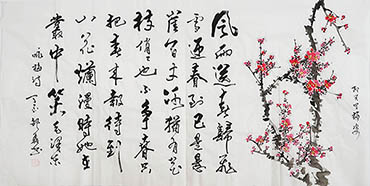 風雨送春歸飛
雪迎春到已是懸
崖百丈冰猶有花
枝俏俏也不爭春只
把春來報待到
山花爛漫時她在
叢中笑毛澤東
詠梅詩